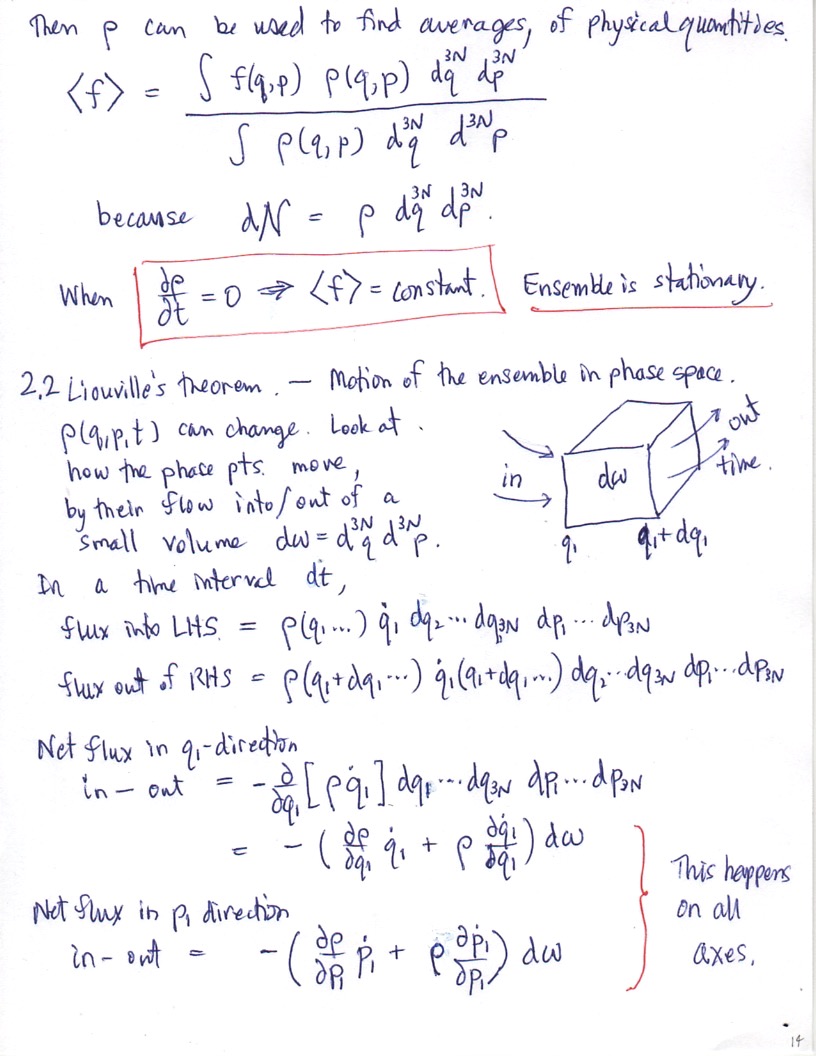 Then ρ can be used to find averages, of physical quantities.
⟨f⟩ = ∫ f(q,p) ρ(q,p) d^{3N}q d^{3N}p / ∫ ρ(q,p) d^{3N}q d^{3N}p
because dN = ρ d^{3N}q d^{3N}p.
When ∂ρ/∂t = 0 ⇒ ⟨f⟩ = constant. Ensemble is stationary.
2.2 Liouville's theorem. — Motion of the ensemble in phase space.
ρ(q,p,t) can change. Look at.
how the phase pts. move,
by their flow into/out of a
small volume dω = d^{3N}q d^{3N}p.
in
dω
out
time.
q₁
q₁+dq₁
In a time interval dt,
flux into LHS = ρ(q₁...) q̇₁ dq₂...dq_{3N} dp₁...dp_{3N}
flux out of RHS = ρ(q₁+dq₁...) q̇₁(q₁+dq₁...) dq₂...dq_{3N} dp₁...dp_{3N}
Net flux in q₁-direction
in - out = -∂/∂q₁ [ρq̇₁] dq₁...dq_{3N} dp₁...dp_{3N}
= -(∂ρ/∂q₁ q̇₁ + ρ ∂q̇₁/∂q₁) dω
Net flux in p₁ direction
in - out = -(∂ρ/∂p₁ ṗ₁ + ρ ∂ṗ₁/∂p₁) dω
This happens
on all
axes.
14